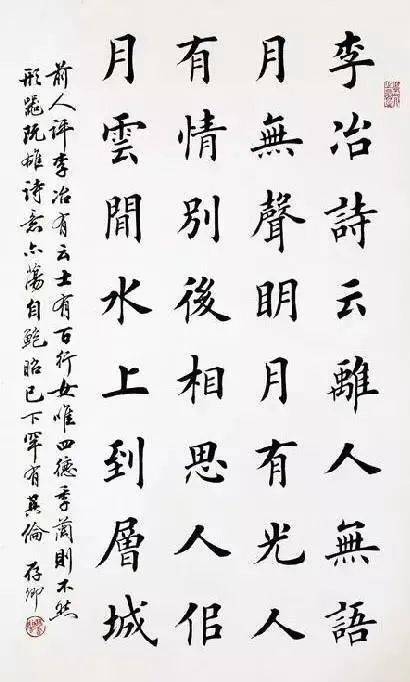 李冶詩云離人無語
月無聲明月有光人
有情別後相思人佀
月雲閒水上到層城
前人評李冶有云士有百行女唯四德季蘭則不然
形器既雄詩意亦蕩自鮑昭已下罕有其倫 存卿